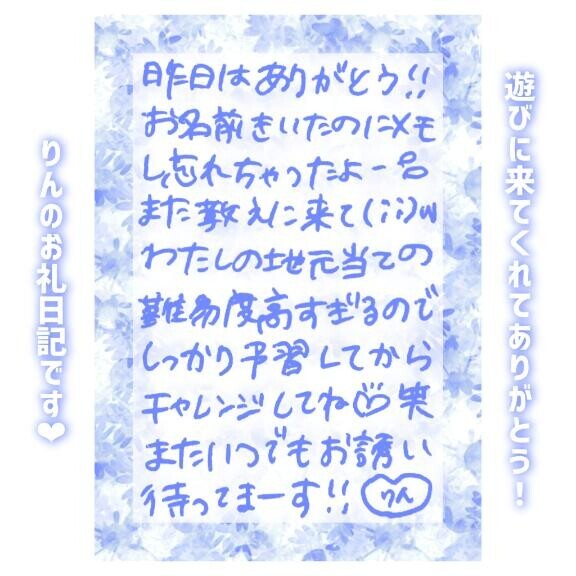 遊びに来てくれてありがとう!
昨日はありがとう!!
お名前きいたのにメモ
し忘れちゃったよー
また教えに来て(;;)w
わたしの地元当ての
難易度高すぎるので
しっかり予習してから
チャレンジしてね♡笑
またいつでもお誘い
待ってまーす!!
りん
りんのお礼日記です❤